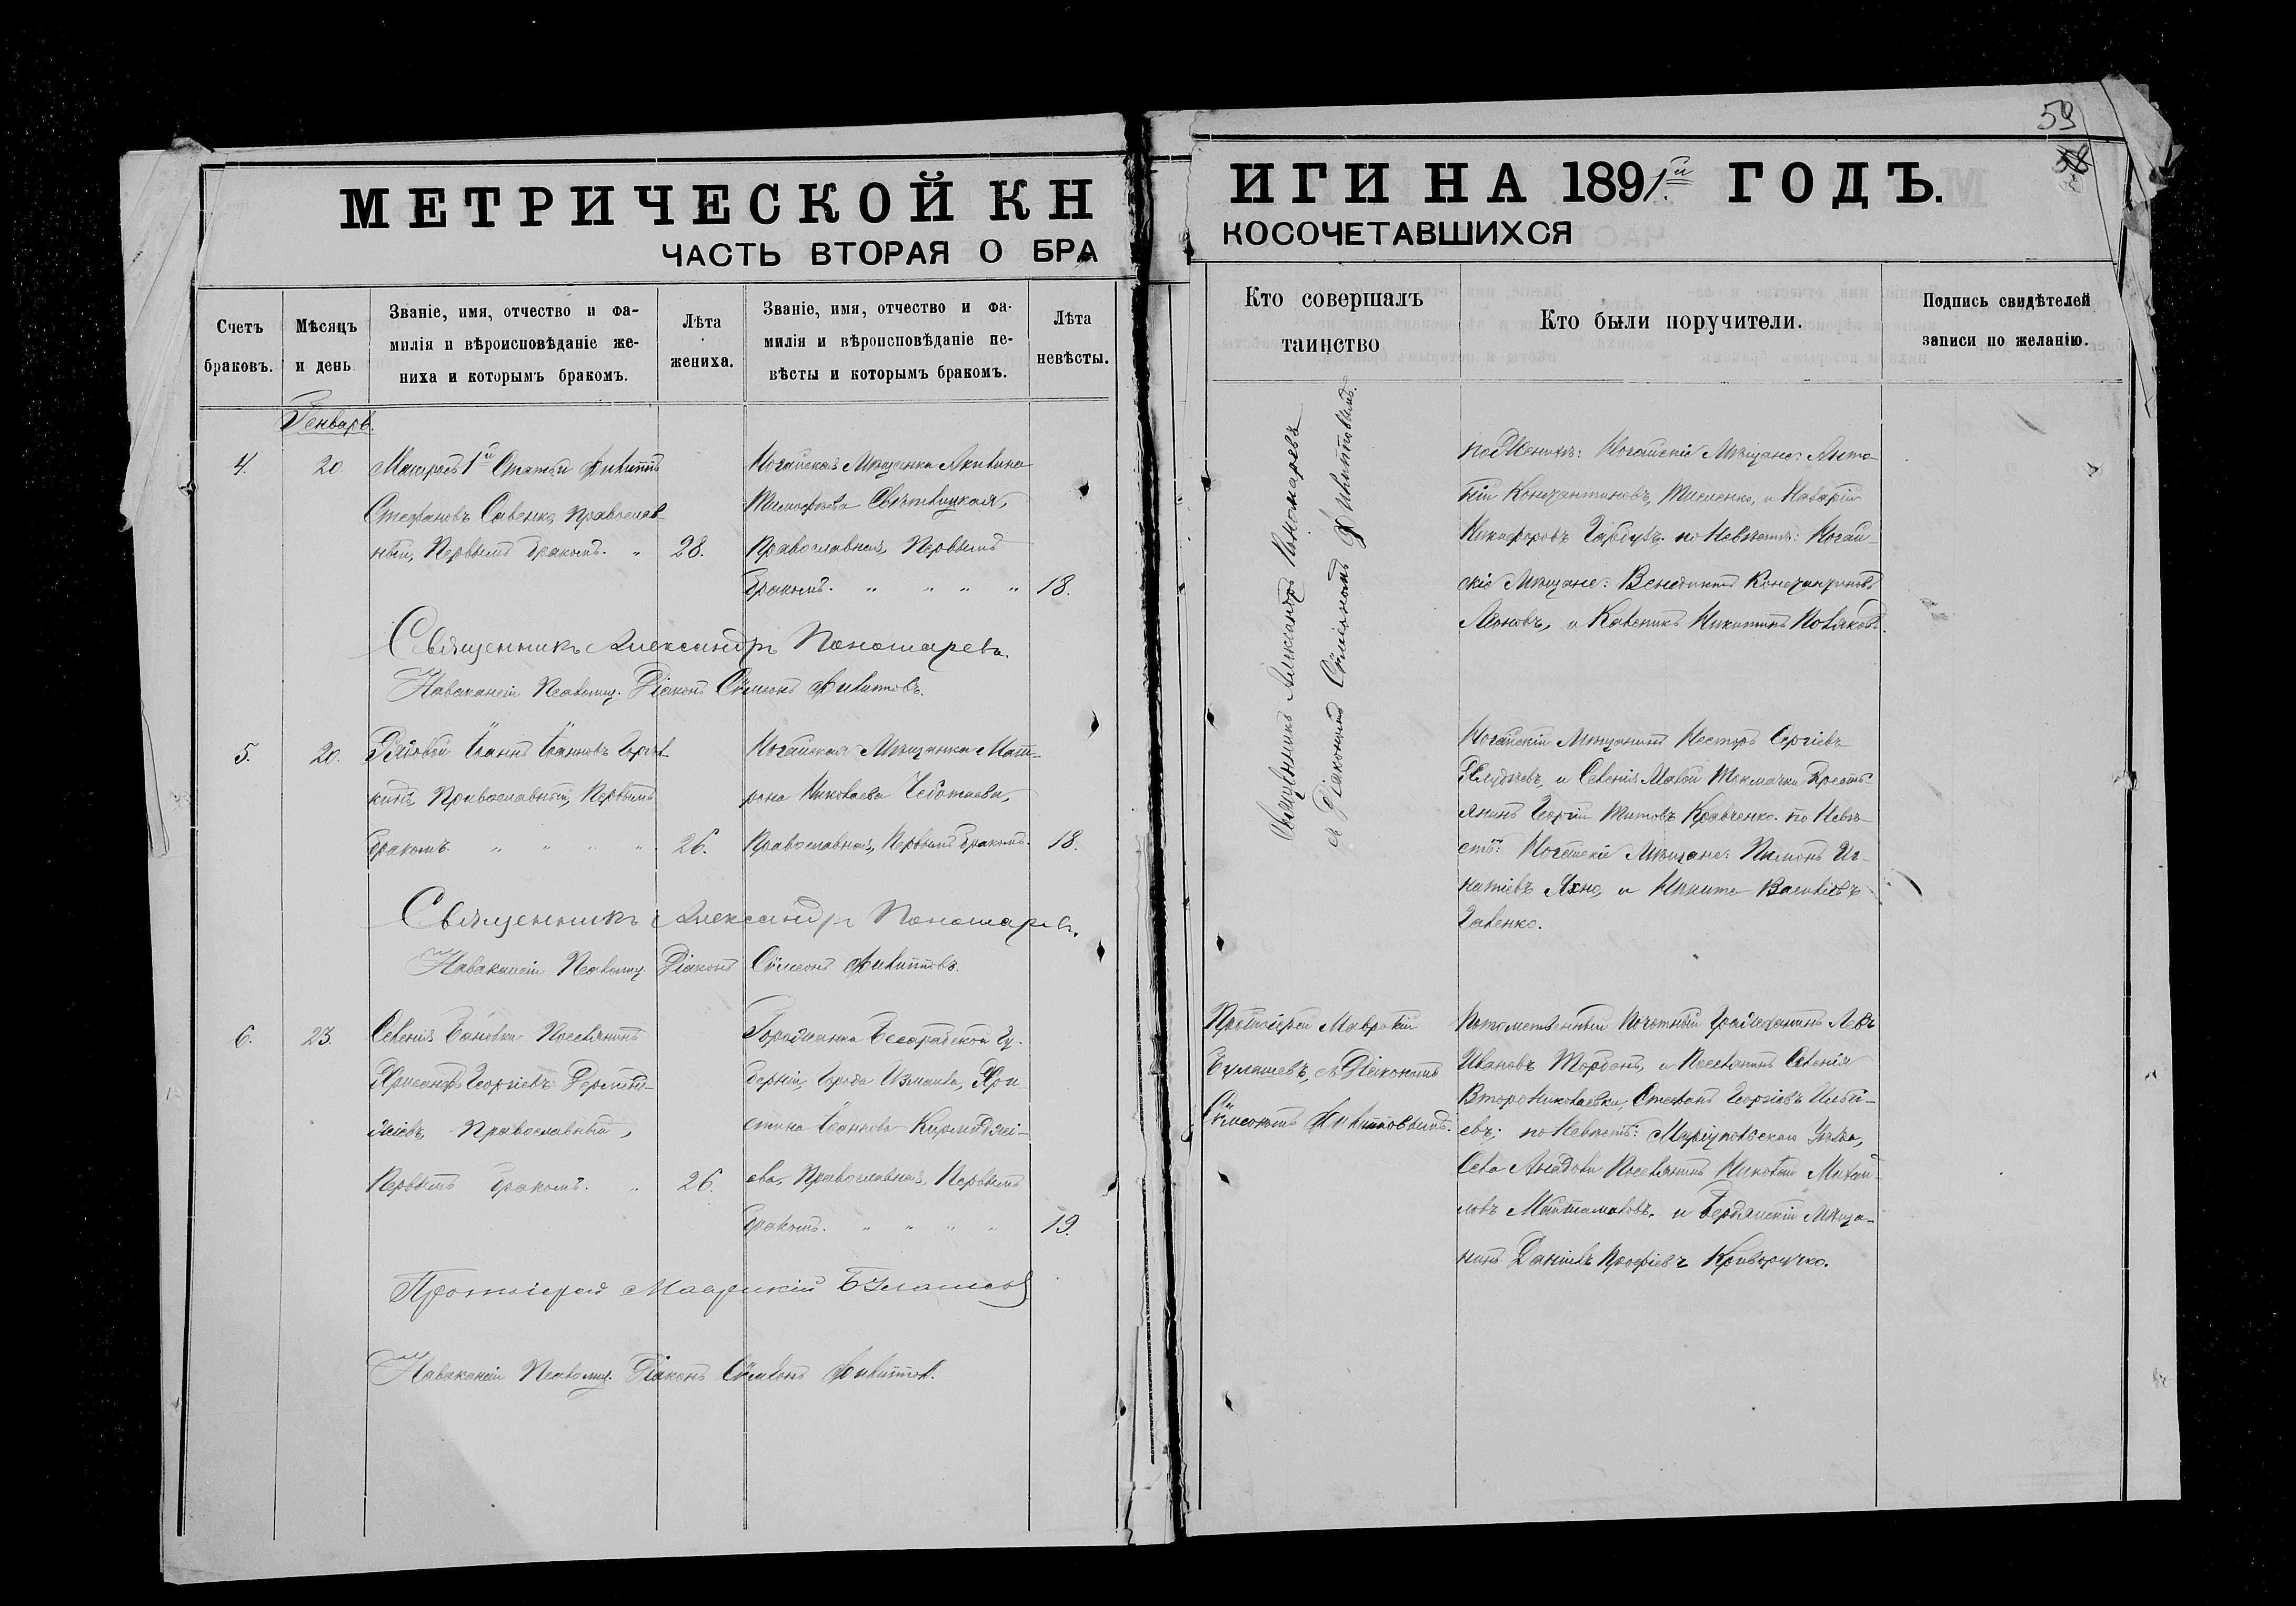 59
58
МЕТРИЧЕСКОЙ КН
ИГИ НА 1891й ГОДЪ.
ЧАСТЬ ВТОРАЯ О БРА
КОСОЧЕТАВШИХСЯ
Счетъ браковъ.
Мѣсяцъ и день
Званіе, имя, отчество и фа-
милія и вѣроисповѣданіе же-
ниха и которымъ бракомъ.
Лѣта жениха.
Званіе, имя, отчество и фа-
милія и вѣроисповѣданіе не-
вѣсты и которымъ бракомъ.
Лѣта невѣсты.
Кто совершалъ
таинство
Кто были поручители.
Подпись свидѣтелей
записи по желанію.
Генварь.
4.
20
Матросъ 1й Статьи Филиппъ
Стефановъ Савенко, православ-
ный, Первымъ бракомъ. "
28.
Ногайская Мѣщанка Акилина
Тимофеева Свѣтлицкая,
Православная, Первымъ
бракомъ. " " " "
18.
Священникъ Александръ Пономаревъ
и Діакономъ Симеономъ Филипповымъ.
по Женихѣ: Ногайскіе Мѣщане: Анто-
ній Константиновъ, и Назарій
Никифоровъ по Невѣстѣ: Ногай-
скіе Мѣщане: Венедиктъ Константиновъ
и Каленикъ Никитинъ
Священникъ Александръ Пономаревъ.
Псаломщ. Діаконъ Симеонъ Филиповъ.
5.
20.
Рядовой Іоаннъ Іоанновъ
Православный, Первымъ
бракомъ. " " " "
26.
Ногайская Мѣщанка Мат-
рона Николаева
Православная, Первымъ бракомъ.
18.
Ногайскій Мѣщанинъ Несторъ Сергіевъ
и Селенія Малой Токмачки Кресть-
янинъ Георгій Титовъ Кравченко. по Невѣ-
стѣ: Ногайскіе Мѣщане: Пименъ Иг-
натіевъ Яхно, и Никита Васильевъ
Галенко.
Священникъ Александръ Пономаревъ.
Псаломщ. Діаконъ Симеонъ Филипповъ.
6.
23.
Селенія Бановки Поселянинъ
Георгіевъ
Православный,
Первымъ бракомъ. "
26.
Горожанка Бессарабской Гу-
берніи, Города Измаила, Хри-
стина Іоаннова Кирмиджі-
ева, Православная, Первымъ
бракомъ. " " " "
19.
Протоіерей Маврикій
Булашевъ, съ Діакономъ
Симеономъ Филипповымъ.
Потомственный Почотный Гражданинъ Левъ
Ивановъ и Поселянинъ Селенія
Второ Николаевки, Стефанъ Георгіевъ
евъ; по Невѣстѣ: Маріупольскаго Уѣзда,
Села Поселянинъ Николай Михай-
ловъ и Бердянскій Мѣща-
нинъ Даніилъ Криворучко.
Протоіерей Маврикій Булашевъ
Псаломщ. Діаконъ Симеонъ Филиппов.